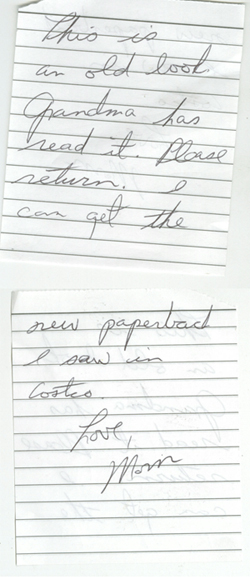 This is
an old book.
Grandma has
read it. Please
return. I
can get the
new paperback
I saw in
Costco.
Love,
Mom